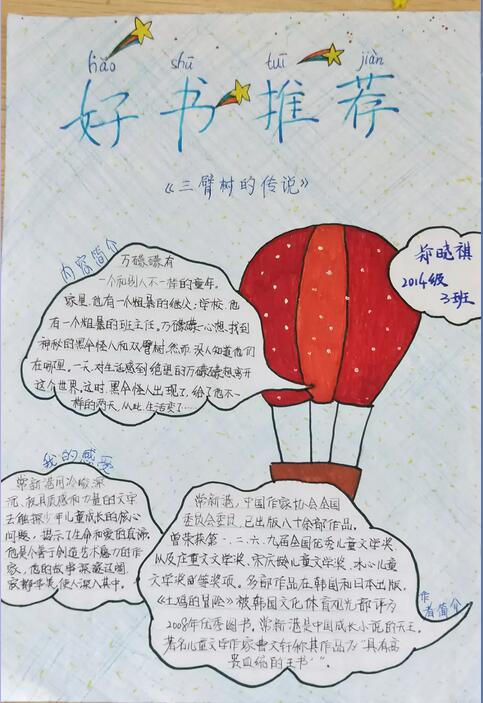 hǎo shū tuī jiàn
好书推荐
《三臂树的传说》
郑晓祺
2014级
3班
内容简介
万礞礞有
一个和别人不一样的童年。
家里,他有一个粗暴的继父;学校,他
有一个粗暴的班主任。万礞礞一心想找到
神秘的黑伞怪人和双臂树,然而,没人知道他们
在哪里。一天,对生活感到绝望的万礞礞想离开
这个世界。这时,黑伞怪人出现了,给了他不一
样的两天,从此,生活变了……
我的感受
常新港用冷峻、深
沉、极具质感和力量的文字
去触探少年儿童成长的核心
问题,揭示了生命和爱的真谛。
他是个善于创造艺术魅力的作
家,他的故事深邃辽阔、
寂静华美,使人深入其中。
作者简介
常新港,中国作家协会全国
委员会委员,已出版八十余部作品。
曾荣获第一、二、六、九届全国优秀儿童文学奖,
以及庄重文文学奖、宋庆龄儿童文学奖、冰心儿童
文学奖图书等奖项。多部作品在韩国和日本出版。
《土鸡的冒险》被韩国文化体育观光部评为
2008年优秀图书。常新港是中国成长小说的天王。
著名儿童文学作家曹文轩称其作品为“具有高
贵血统的王书”。